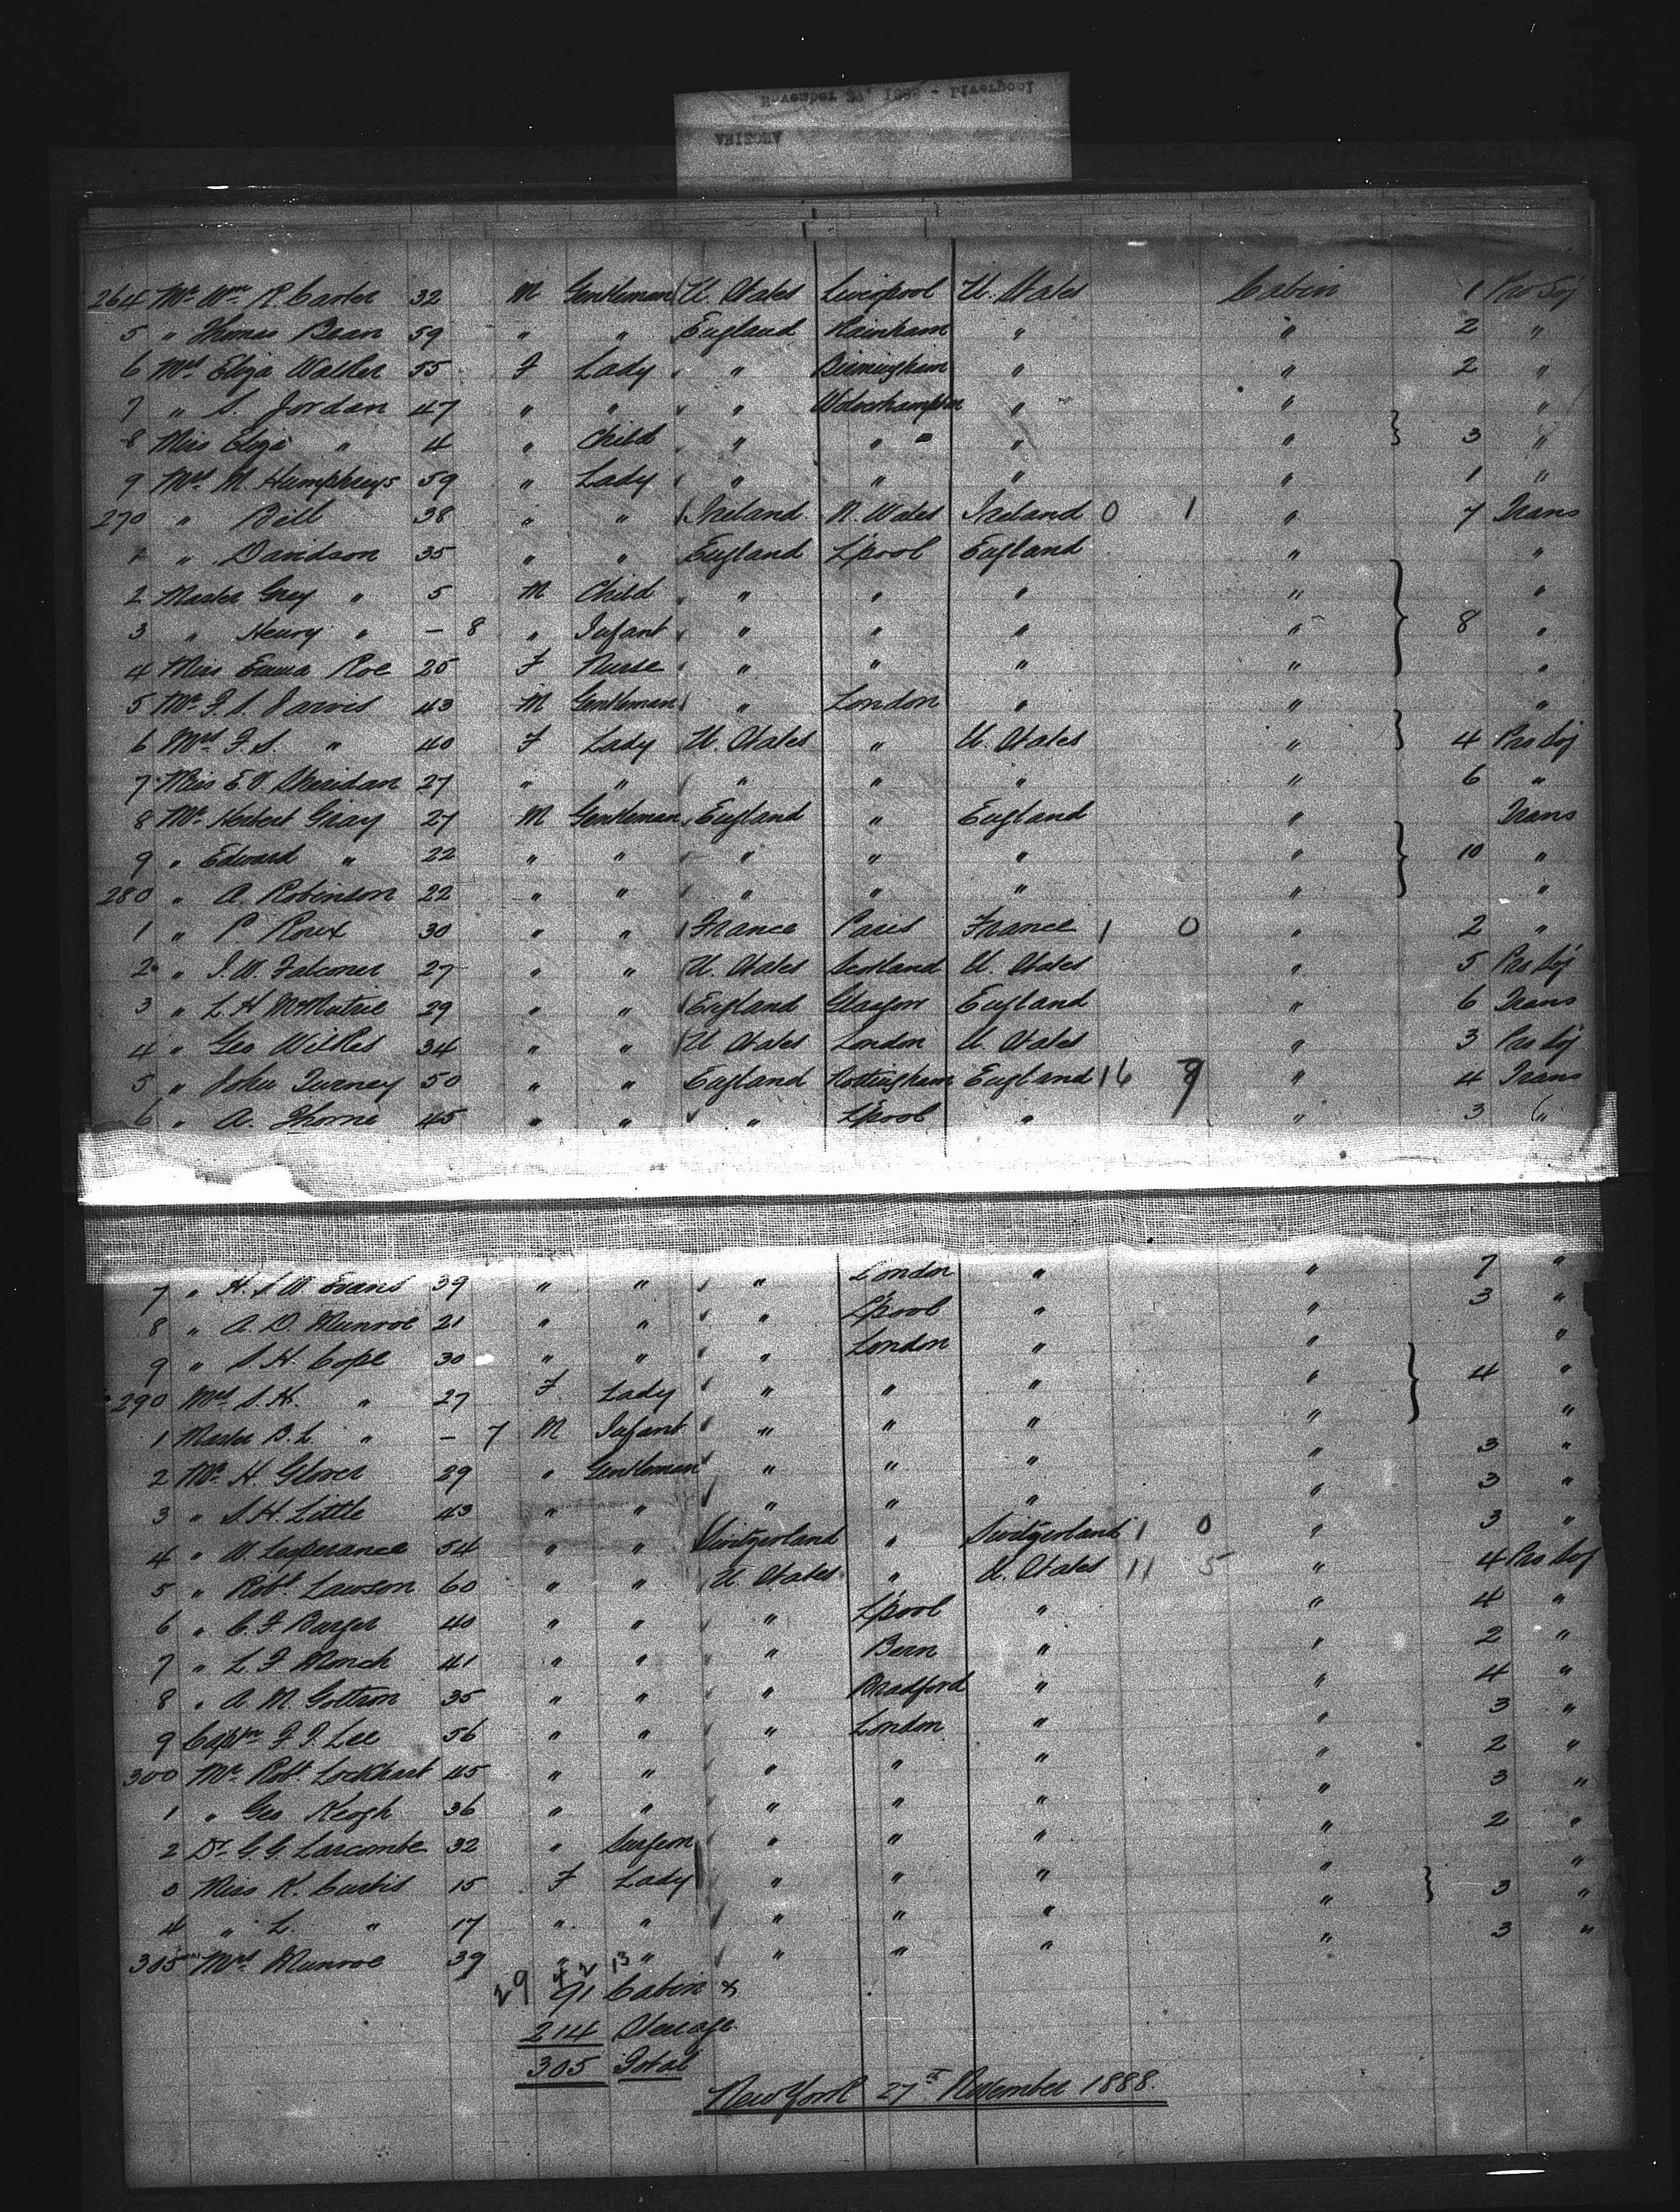 November 27, 1888 - Liverpool
ARIZONA
264 Mr. Wm. R. Carter 32 M Gentleman U. States Liverpool U. States Cabin 1 Pro Soj
5 " Thomas Bean 59 " " England Rainham " " 2 "
6 Mrs Eliza Waller 55 F Lady " Birmingham " " 2 "
7 " S. Jordan 47 " " " Wolverhampton " " "
8 Miss Eliza " 4 " Child " " " " 3 "
9 Mrs M. Humphreys 59 " Lady " " " " 1 "
270 " Bell 38 " " Ireland N. Wales Ireland 0 1 " 7 Trans
1 " Davidson 35 " " England L'pool England " "
2 Master Grey " 5 M Child " " " " "
3 " Henry " – 8 " Infant " " " " 8 "
4 Miss Emma Roe 25 F Nurse " " " " "
5 Mr. F. S. Jarvis 43 M Gentleman " London " " "
6 Mrs F. S. " 40 F Lady U. States " U. States " 4 Pro Soj
7 Miss E. V. Sheridan 27 " " " " " " 6 "
8 Mr. Herbert Gray 27 M Gentleman England " England " Trans
9 " Edward " 22 " " " " " " 10 "
280 " A. Robinson 22 " " " " " " "
1 " P. Roux 30 " " France Paris France 1 0 " 2 "
2 " J. W. Falconer 27 " " U. States Scotland U. States " 5 Pro Soj
3 " L. H. McMutrie 29 " " England Glasgow England " 6 Trans
4 " Geo Wilkes 34 " " U. States London U. States " 3 Pro Soj
5 " John Turney 50 " " England Nottingham England 16 9 " 4 Trans
6 " A. Thorne 45 " " " L'pool " " 3 "
7 " H. S. W. Evans 39 " " " London " " 7 "
8 " A. D. Munroe 21 " " " L'pool " " 3 "
9 " S. H. Cope 30 " " " London " " "
290 Mrs S. H. " 27 F Lady " " " " 4 "
1 Master B. L. " – 7 M Infant " " " " "
2 Mr. H. Glover 29 " Gentleman " " " " 3 "
3 " S. H. Little 43 " " " " " " 3 "
4 " W. Lesperance 54 " " Switzerland " Switzerland 1 0 " 3 "
5 " Robt. Lawson 60 " " U. States " U. States 11 5 " 4 Pro Soj
6 " C. F. Burger 40 " " " L'pool " " 4 "
7 " L. F. Monch 41 " " " Bern " " 2 "
8 " A. M. Gottron 35 " " " Bradford " " 4 "
9 Captn F. P. Lee 56 " " " London " " 3 "
300 Mr. Robt. Lockhart 45 " " " " " " 2 "
1 " Geo Keogh 36 " " " " " " 3 "
2 Dr. G. G. Larcombe 32 " Surgeon " " " " 2 "
3 Miss K. Curtis 15 F Lady " " " " "
4 " L. " 17 " " " " " " 3 "
305 Mrs Munroe 39 " " " " " " 3 "
42 13
29 91 Cabin &
214 Steerage
305 Total
New York 27th November 1888.